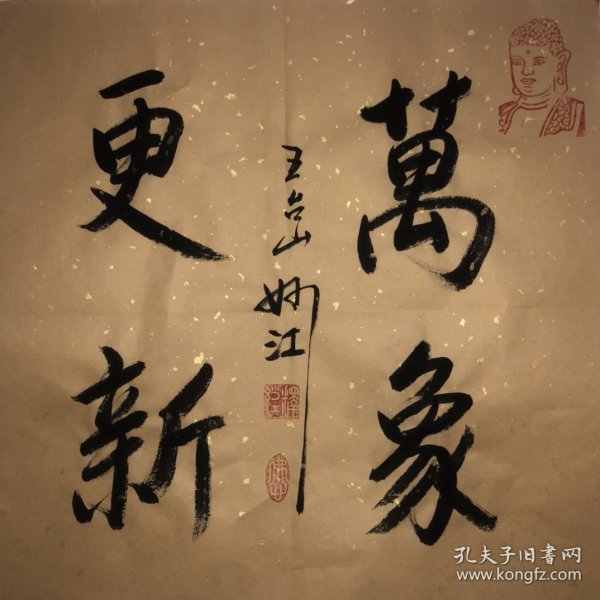 萬象
更新
五台山妙江
孔夫子旧書网
www.kongfz.com